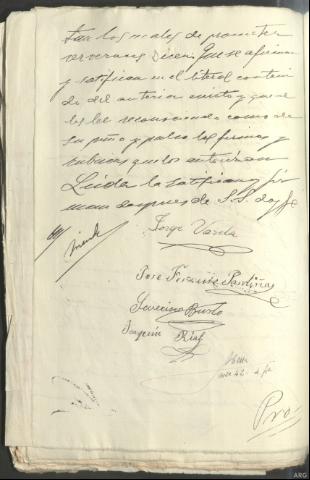 los cuales de prometer
ser veraces Dicen: Que se afirman
y ratifican en el literal conteni
do del anterior escrito y que
los lee reconociendo como de
su puño y las firmas y
rubricas que los autorizan
Leida la ratifican y fir
man despues de S.S. doy fe
Jorge Varela
José Pardiñas
Severino Busto
Joaquín Rial
ARG